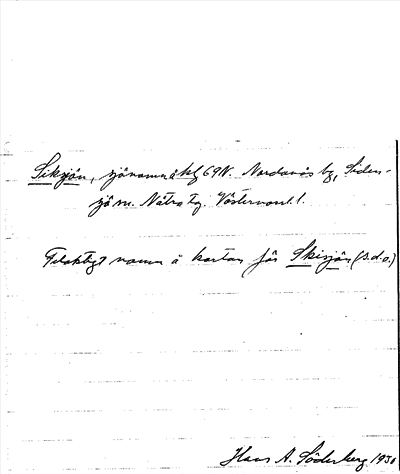 Siksjön, sjönamn å kbl 69N. Nordanås by, Siden-
sjö sn. Nätra tg. Västernorrl. l.
Felaktigt namn å kartan för Skisjön (s.d.o.)
Hans A. Söderberg 1931